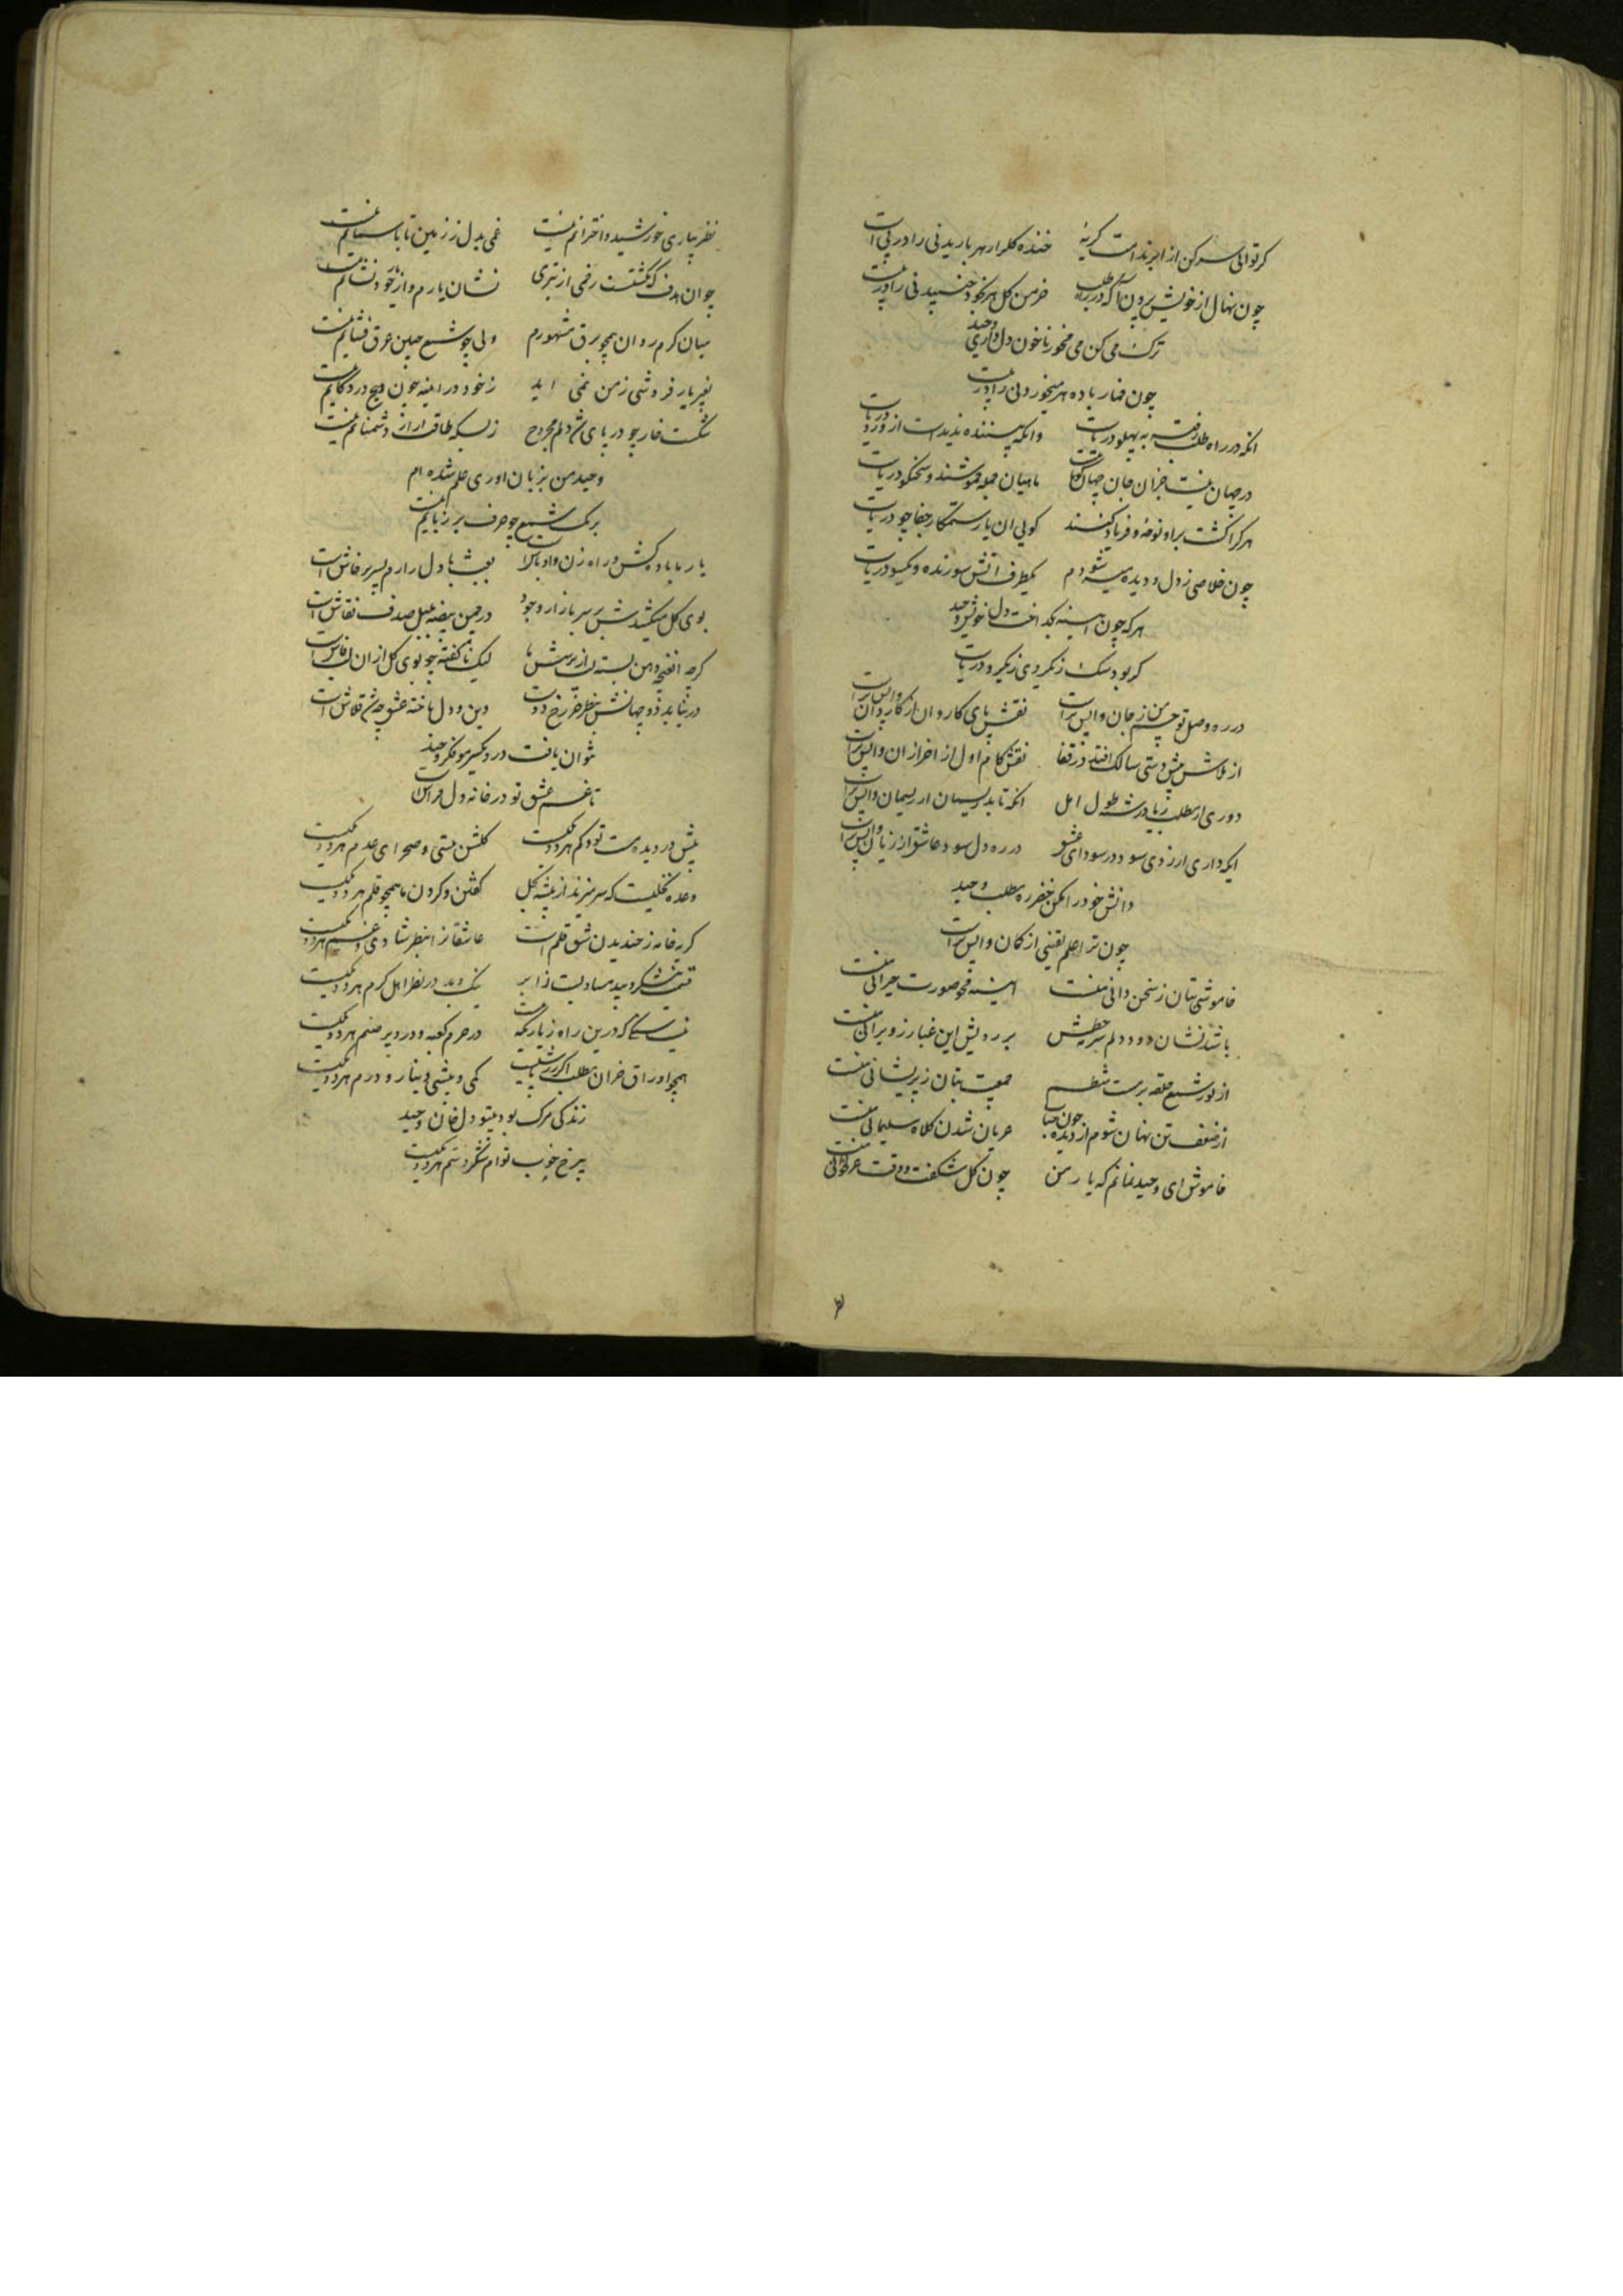 کر توانی سر کن از ابر ندامت کریهٔ خنده کلرار هر باریدنی را در پی است
چون نهال از خویش بیرون آ که در راه طلب خرمن کل هر بخود جنبیدنی را در پی است
ترک می کن می مخور تا خون دل داری وحید
چون خمار باده هر میخوردنی را در پی است
انکه در راه طلب رفته به پهلو دریاست وانکه بیننده ندیدست ازو رو دریاست
در جهان نیست جز ان جان جهان ماهیان جمله خموشند و سخنکو دریاست
هر کرا کشت براو نوحه و فریاد کنند کویی ان یار ستمکار جفا جو دریاست
چون خلاصی ز دل و دیده میسر شودم یکطرف اتش سوزنده و یکسو دریاست
هر که چون اینه بکداخت دل خویش وحید
کر بود سنک ز یکرویی دریاست
در ره وصل تو جسم من از جان واپس تر است نقش پای کاروان از کاروان واپس تر است
از تلاش پیش دستی سالک افتد در قفا نقش کام اول از اخر ازان واپس تر است
دوری از مطلب زیاد از رشته طول امل انکه تابد ریسمان از ریسمان واپس تر است
ایکه داری ارزوی سود در سودای عشق در ره دل سود عاشق از زیان واپس تر است
دانش خود را مکن خضر ره مطلب وحید
چون ترا علم یقینی از کمان واپس تر است
خاموشی بتان ز سخن دانی منست اینه محو صورت حیرانی منست
باشد نشان دود دلم سر خطش بر رویش این غبار ز ویرانی منست
از نور شمع حلقه بزمست منتظم جمعیت بتان ز پریشانی منست
از ضعف تن نهان شوم از دیده چون حباب عریان شدن کلاه سلیمانی منست
خاموش ای وحید نمانم که یار من چون کل شکفت وقت غزلخوانی منست
نظر بیاری خورشید و اخترانم نیست غمی بدل ز زمین تا باسمانم نیست
چو ان هدف که نکشتست زخمی از تیری نشان یارم و از یار خود نشانم نیست
میان کرم روان همچو برق مشهورم ولی چو شمع جبین عرق فشانم نیست
بغیر یار فروشی ز من نمی اید ز خود در اینه چون هیچ در دکانم نیست
شکست خار چو در پای شد دلم مجروح ز بسکه طاقت ازار دشمنانم نیست
وحید من بزبان اوری علم شده ام
برنک شمع چو حرف بر زبانم نیست
یار ما باده کش و راه زن و اوباش است بعبث با دل زارم بسر پرخاش است
بوی کل میکشدش بر سر بازار وجود در چمن بیضه بلبل صدف نقاش است
کرچه ان غنچه دهن بسته لب از پرسش ما لیک ناکفته چو بوی کل ازان لب فاش است
در نیاید دو جهانش بنظر رخ دوست دین و دل باخته عشق چه قلاش است
نتوان یافت درو یکسر مو فکر وحید
تا غم عشق تو در خانه دل فراش است
بیش در دیده مست تو و کم هر دو یکیست کلشن هستی و صحرای عدم هر دو یکیست
وعده نخلیست که سر میزند از ریشه کل کفتن و کردن ما همچو قلم هر دو یکیست
کریه خامه ز خندیدن شق قلم است عاشقانرا بنظر شادی و غم هر دو یکیست
نیک و بد در نظر اهل کرم هر دو یکیست
نیست که درین راه زیارتکه نیست در حرم کعبه و در دیر صنم هر دو یکیست
همچو اوراق خزان مطلب اکر کمی و بیشی دینار و درم هر دو یکیست
زندکی مرک بود بیتو دل وحید
برخ خوب توام شکر و ستم هر دو یکیست